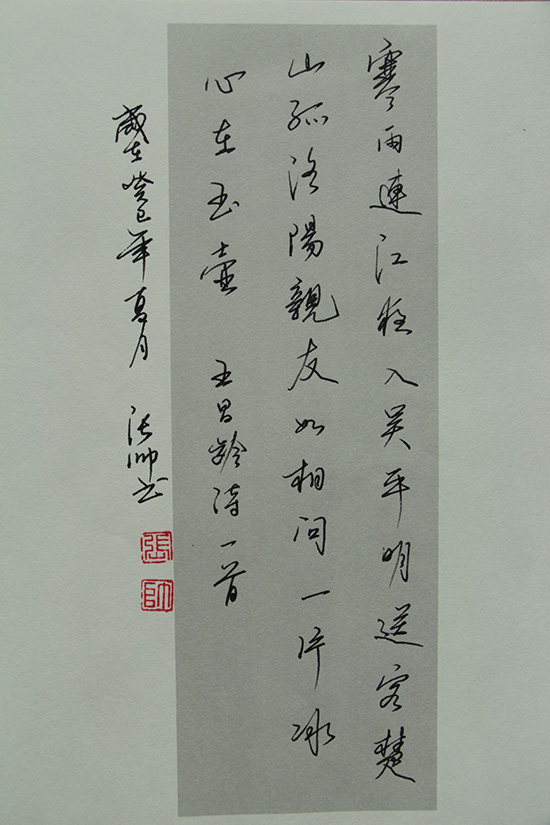 寒雨連江夜入吴平明送客楚
山孤洛陽親友如相问一片冰
心在玉壺 王昌齡诗一首
歲在癸巳年夏月 张帅书
張
帥